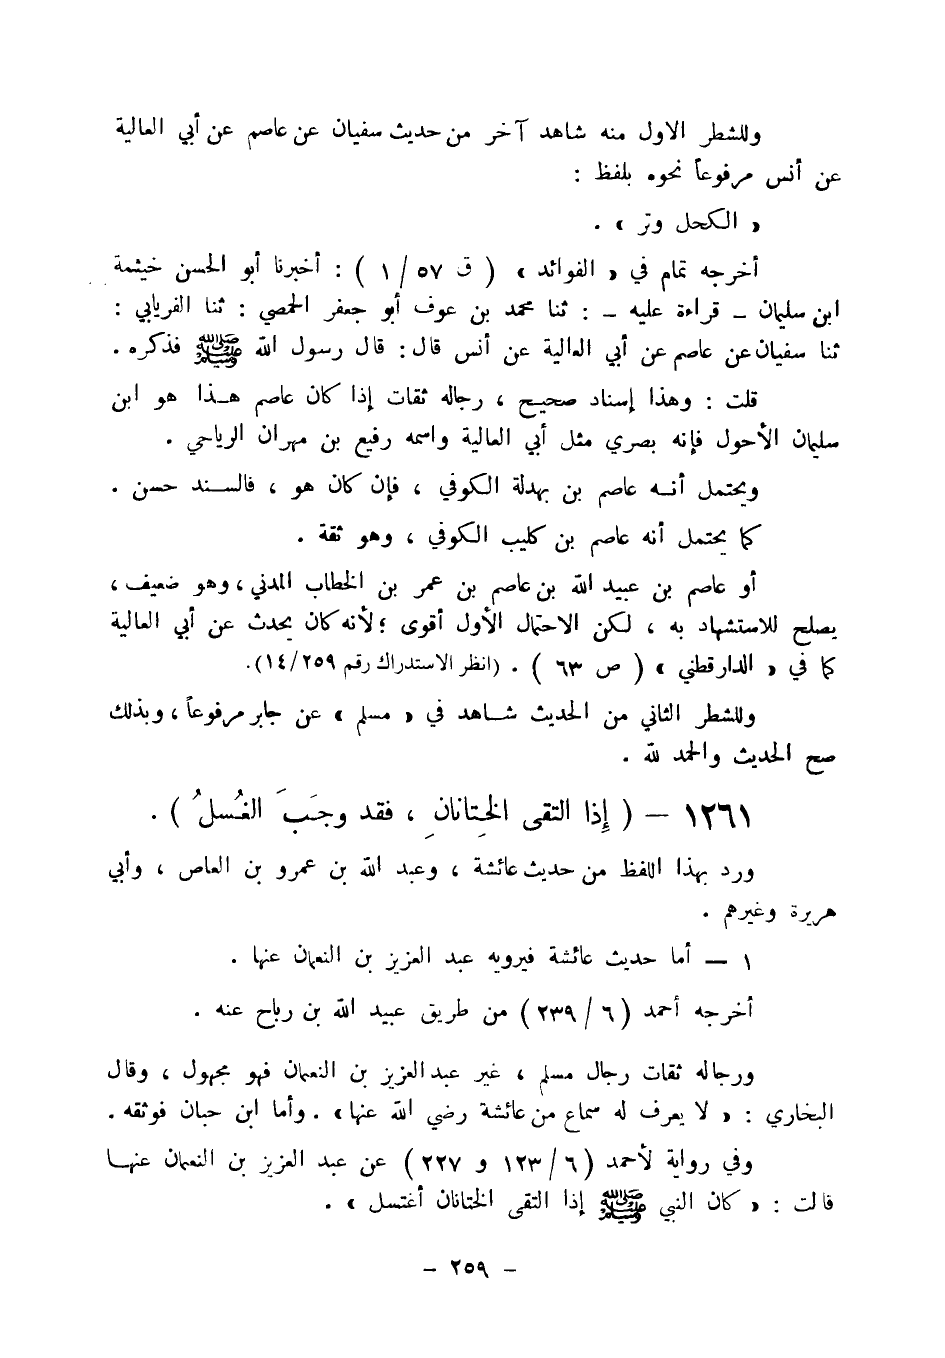 وللشطر الاول منه شاهد آخر من حديث سفيان عن عاصم عن أبي العالية
عن أنس مرفوعاً نحوه بلفظ :
« الكحل وتر » .
أخرجه تمام في « الفوائد » ( ق ٥٧ / ١ ) : أخبرنا أبو الحسن خيثمة
ابن سليمان ـ قراءة عليه ـ : ثنا محمد بن عوف أبو جعفر الحمصي : ثنا الفريابي :
ثنا سفيان عن عاصم عن أبي العالية عن أنس قال : قال رسول الله ﷺ فذكره .
قلت : وهذا إسناد صحيح ، رجاله ثقات إذا كان عاصم هـذا هو ابن
سليمان الأحول فإنه بصري مثل أبي العالية واسمه رفيع بن مهران الرياحي .
ويحتمل أنـه عاصم بن بهدلة الكوفي ، فإن كان هو ، فالسـند حسن .
كما يحتمل أنه عاصم بن كليب الكوفي ، وهو ثقة .
أو عاصم بن عبيد الله بن عاصم بن عمر بن الخطاب المدني ، وهو ضعيف ،
يصلح للاستشهاد به ، لكن الاحتمال الأول أقوى ؛ لأنه كان يحدث عن أبي العالية
كما في « الدارقطني » ( ص ٦٣ ) . (انظر الاستدراك رقم ١٤/٢٥٩).
وللشطر الثاني من الحديث شـاهد في « مسلم » عن جابر مرفوعاً ، وبذلك
صح الحديث والحمد لله .
١٢٦١ – ( إِذا التقى الخِتانانِ ، فقد وجَبَ الغُسلُ ) .
ورد بهذا اللفظ من حديث عائشة ، وعبد الله بن عمرو بن العاص ، وأبي
هريرة وغيرهم .
١ – أما حديث عائشة فيرويه عبد العزيز بن النعمان عنها .
أخرجه أحمد ( ٦ / ٢٣٩ ) من طريق عبيد الله بن رباح عنه .
ورجاله ثقات رجال مسلم ، غير عبد العزيز بن النعمان فهو مجهول ، وقال
البخاري : « لا يعرف له سماع من عائشة رضي الله عنها » . وأما ابن حبان فوثقه .
وفي رواية لأحمد ( ٦ / ١٢٣ و ٢٢٧ ) عن عبد العزيز بن النعمان عنهـا
قالت : « كان النبي ﷺ إذا التقى الختانان أغتسل » .
– ٢٥٩ –